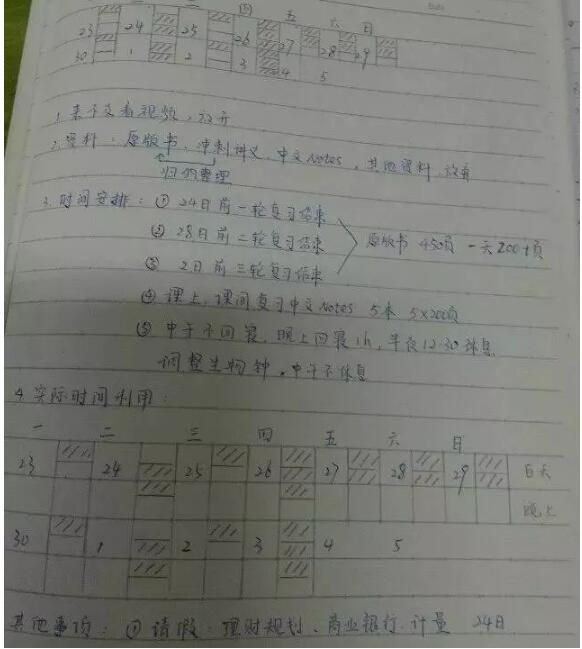 四 五 六 日
23 24 25 26 27 28 29
30 1 2 3 4 5
1. 来不及看视频，放弃
2. 资料：原版书、冲刺讲义、中文Notes，其他资料放弃
归纳整理
3. 时间安排：① 24日前一轮复习结束
② 28日前二轮复习结束 原版书 450页 一天200+页
③ 2日前三轮复习结束
④ 课上、课间复习中文Notes 5本 5×200页
⑤ 中午不回寝，晚上回寝1h，半夜12:30休息
调整生物钟，中午不休息
4. 实际时间利用：
一 二 三 四 五 六 日
23 24 25 26 27 28 29 白天
晚上
30 1 2 3 4 5
其他事项：① 请假：理财规划、商业银行、计量 24日